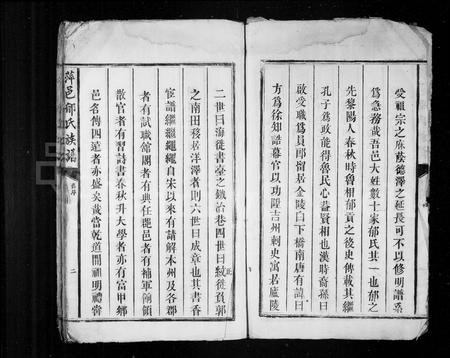 受祖宗之庥蔭德澤之延長可不以修明譜系
為急務哉吾邑大姓數十家郁氏其一也郁之
先黎陽人春秋時魯相郁貢之後史傳載其繼
孔子為政能得魯民心蓋賢相也漢時裔孫曰
啟受職為員郎留居金陵白下橋南唐有諱曰
方為徐知誥幕官以功陞吉州刺史寓居廬陵
二世曰海徙書臺之鐵冶巷四世曰紋徙貧郭
之南田移居洋澤者則六世曰成章也其書香
宦譜繼繼繩繩自宋以來有請解本州及各郡
者有試職館閣者有典任罷邑者有補軍領領
散官者有習詩書春秋升大學者亦有富甲鄉
邑名傳四遠者亦盛矣哉當乾道間祖明禮嘗
萍邑郁氏族譜
舊序
二